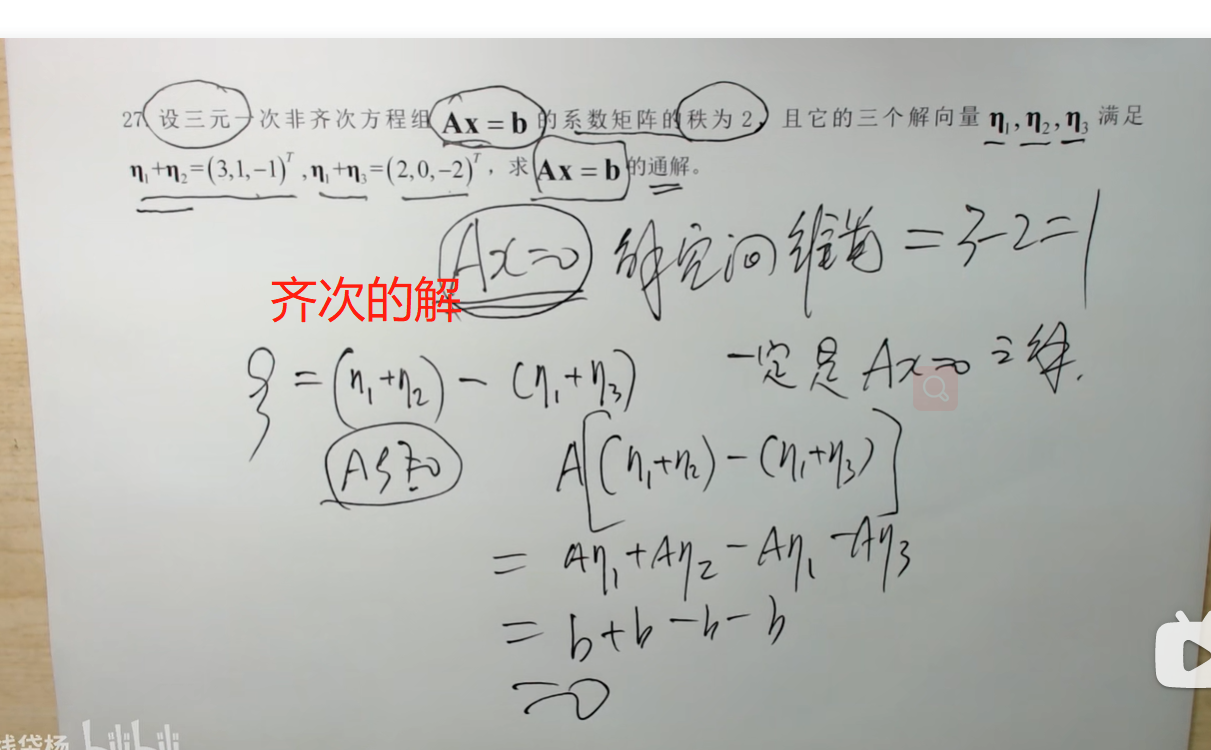 27、设三元一次非齐次方程组 Ax = b 的系数矩阵的秩为 2，且它的三个解向量 η₁, η₂, η₃ 满足
η₁+η₂=(3,1,−1)ᵀ, η₁+η₃=(2,0,−2)ᵀ，求 Ax = b 的通解。
Ax=0 解空间维数 = 3-2=1
齐次的解
ξ = (η₁+η₂) - (η₁+η₃) 一定是 Ax=0 之解.
Aξ=0 A[(η₁+η₂)-(η₁+η₃)]
= Aη₁+Aη₂-Aη₁-Aη₃
= b+b-b-b
=0
钱袋杨 bilibili